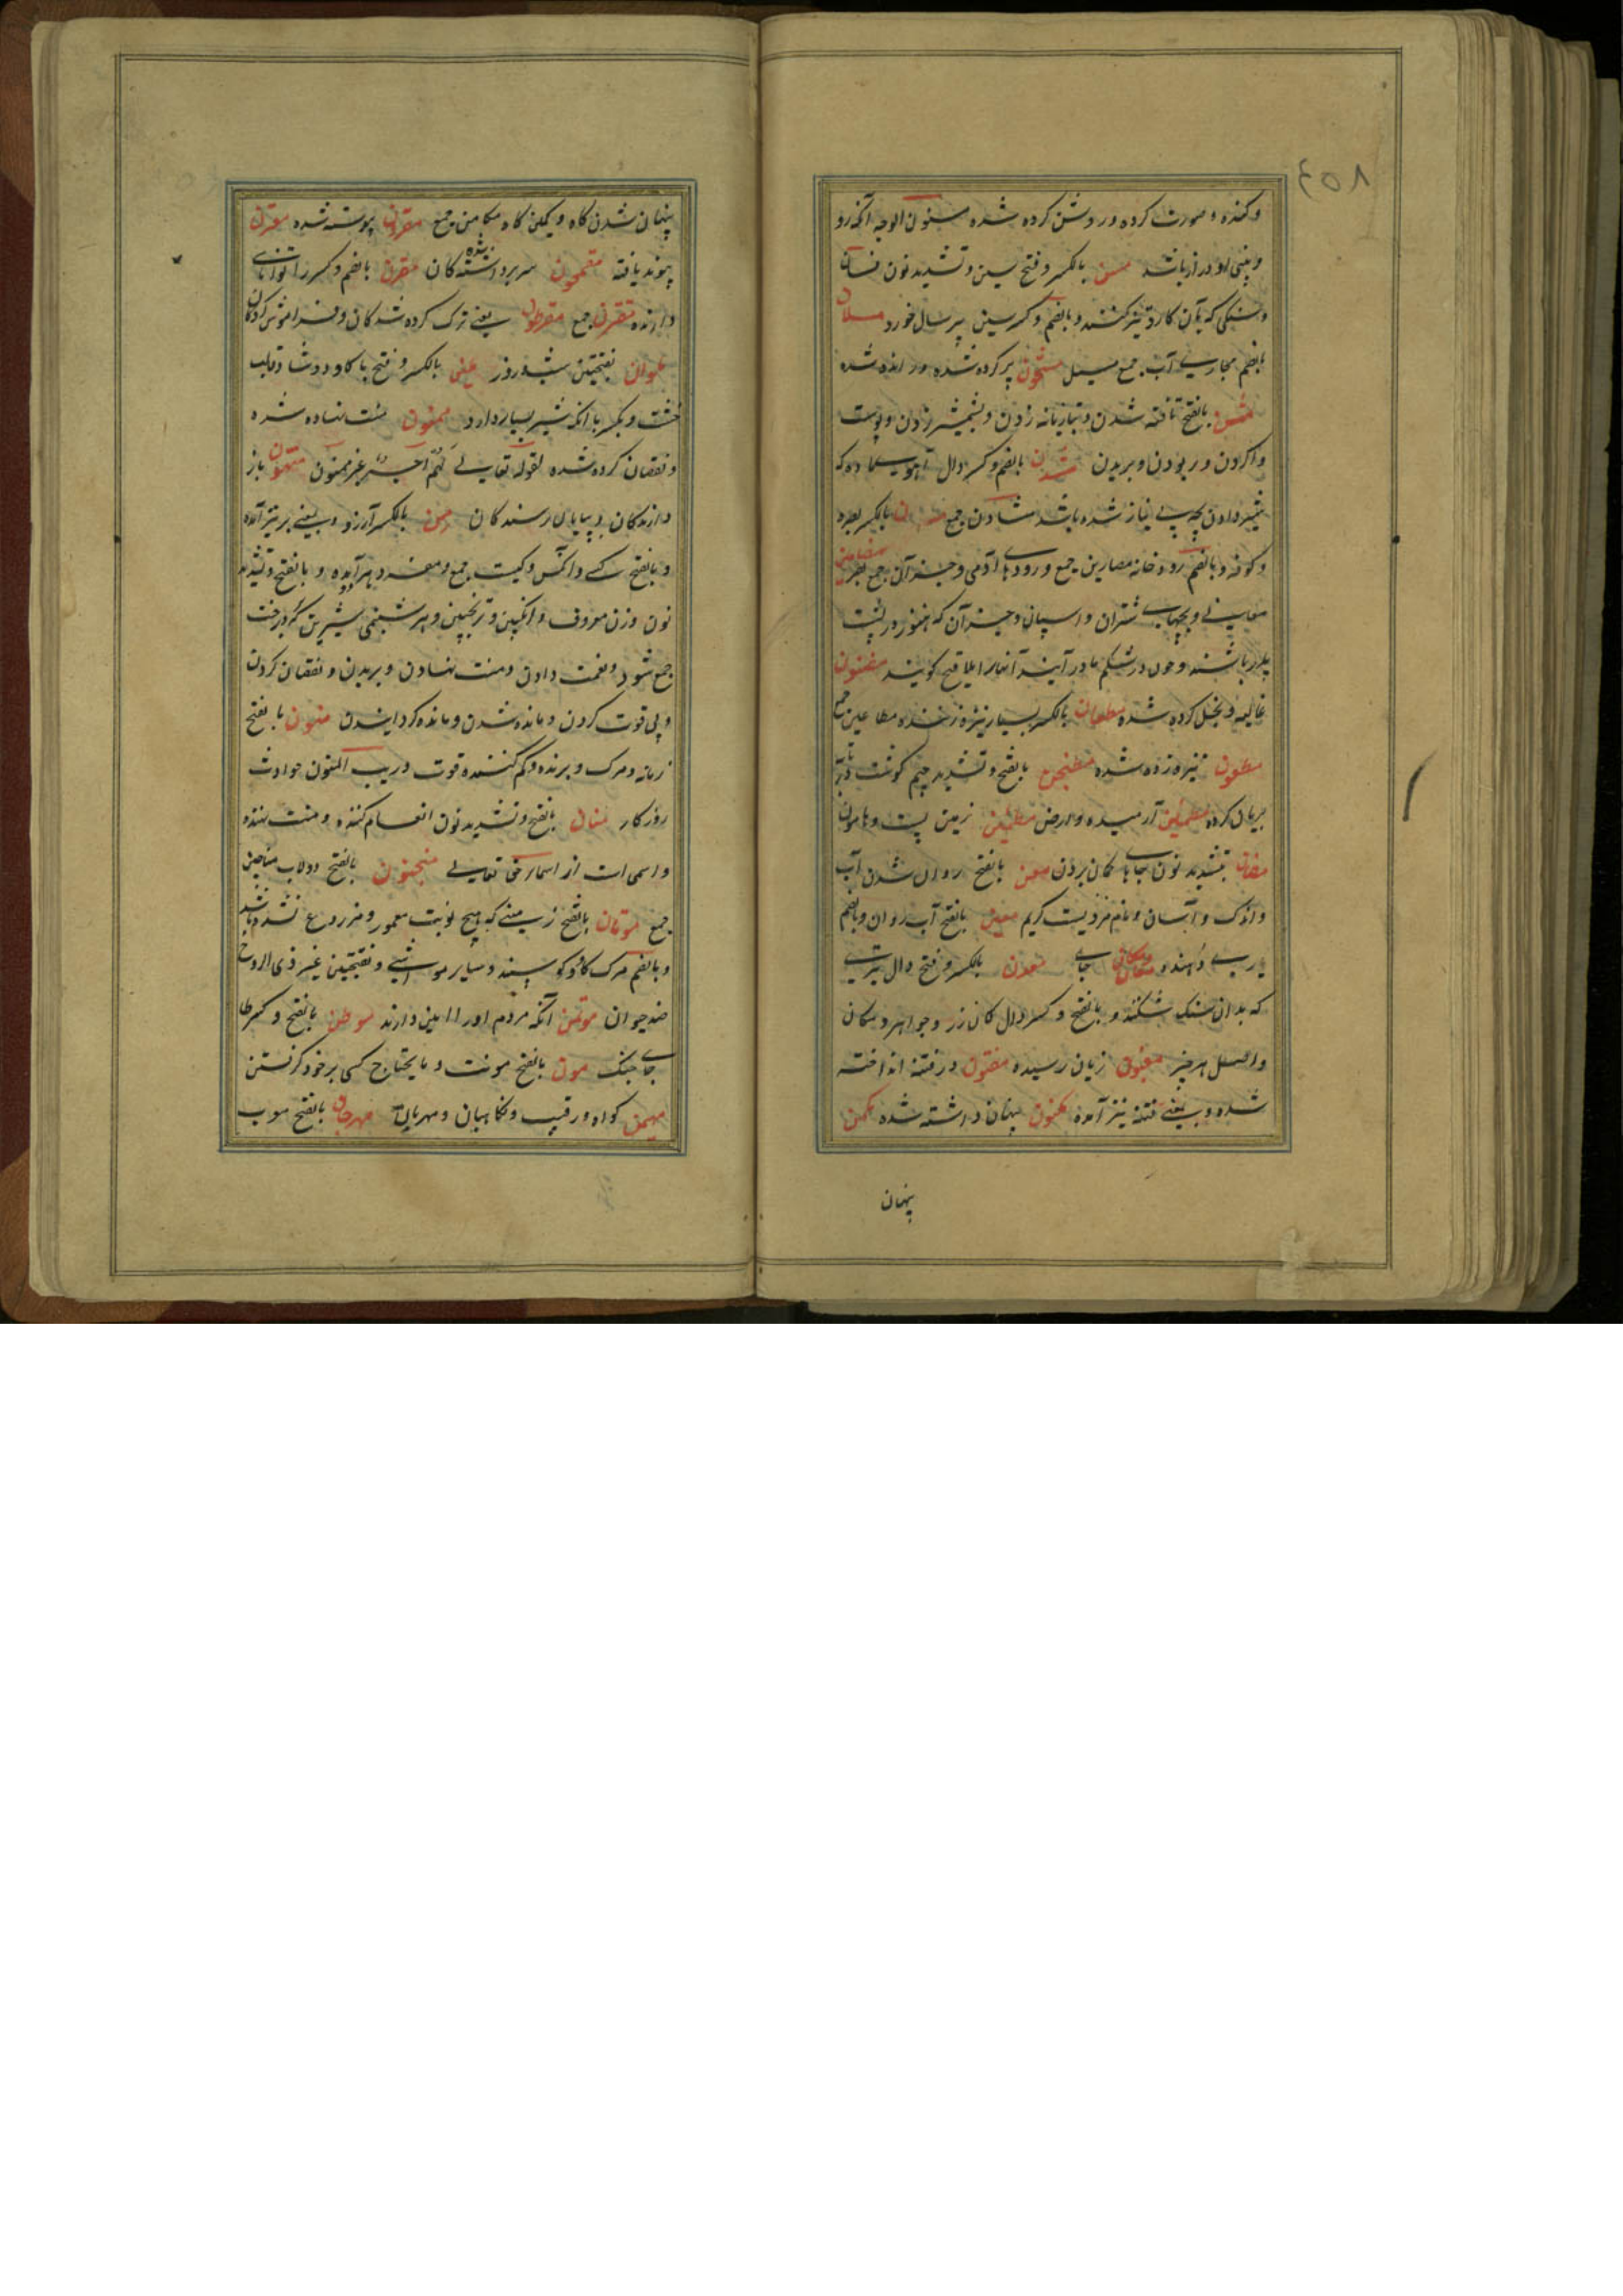 ٤٥٨
وکنده و صورت کرده و روشن کرده شده مسنون الوجه آنکه رو
و بینی او دراز باشد مسن بالکسر و فتح سین و تشدید نون فسان
و سنکی که بآن کارد تیز کنند و بالضم و کسر سین پیر سال خورد مسلان
بالضم مجاری آب جمع مسیل مشحون پر کرده شده و رانده شده
مشن بالفتح تافته شدن و تازیانه زدن و بشمشیر زدن و پوست
وا کردن و ربودن و بریدن مشدن بالضم و کسر دال آهوی ماده که
شیر دادن بچه بی نیاز شده باشد مشادن جمع مصران بالکسر بصره
و کوفه و بالضم رودخانه مصارین جمع و رودهای آدمی و جز آن جمع مضامین
معانی و بچهای شتران و اسپان و جز آن که هنوز در پشت
پدر باشند و چون در شکم مادر آیند آنها را ملاقیح کویند مضنون
غالیه و بخل کرده شده مطعان بالکسر بسیار نیزه زننده مطاعین جمع
مطعون نیزه زده شده مطنجن بالفتح و تشدید جیم کوشت در تابه
بریان کرده مطمئن آرمیده و الارض مطمئن زمین پست و هامون
مظان بتشدید نون جاهای کمان بردن معن بالفتح روان شدن آب
و اندک و آسان و نام مردیست کریم معین بالفتح آب روان و بالضم
یاری دهنده معان مکان جای معدن بالکسر و فتح دال تبری
که بدان سنک شکنند و بالفتح و کسر دال کان زر و جواهر و مکان
و اصل هر چیز مغبون زیان رسیده مفتون در فتنه انداخته
شده و بمعنی فتنه نیز آمده مکنون پنهان داشته شده مکمن
پنهان
پنهان شدن کاه و کمین کاه مکامن جمع مقرون پیوسته شده مقرن
پیوند یافته مقمحون سر برداشته شده کان مقرن بالضم و کسر را توانای
دارنده مقرنن جمع مفرطون یعنی ترک کرده شدکان و فراموش کردکان
ملوان بفتحتین شب و روز ملبن بالکسر و فتح با کاو دوشا و قالب
خشت و بکسر با انکه شیر بسیار دارد ممنون منت نهاده شده
و نقصان کرده شده لقوله تعالی لهم اجر غیر ممنون منتهون باز
دارندکان و بپایان رسندکان من بالکسر آرزو و بمعنی بر نیز آمده
و بالفتح کسی و آنکس و کیست جمع و مفرد هر آیده و بالفتح و تشدید
نون وزن معروف و انکبین و ترنجبین و هر شبنمی شیرین که بر درخت
جمع شود و نعمت دادن و منت نهادن و بریدن و نقصان کردن
و بی قوت کردن و مانده شدن و مانده کردانیدن منون بالفتح
زمانه و مرک و برنده و کم کننده قوت و ریب المنون حوادث
روزکار منان بالفتح و تشدید نون انعام کننده و منت نهنده
و اسمی است از اسمای حق تعالی منجنون بالفتح دولاب مناجین
جمع موتان بالفتح زمینی که هیچ نوبت معمور و مزروع نشده باشد
و بالضم مرک کاو و کوسپند و سایر مواشی و بفتحتین غیر ذی الروح
ضد حیوان موتمن آنکه مردم او را امین دارند موطن بالفتح و کسر طا
جای جنک مون بالفتح مونت و ما یحتاج کسی بر خود کرفتن
مهیمن کواه و رقیب و نکاهبان و مهربان مهرجان بالفتح معرب